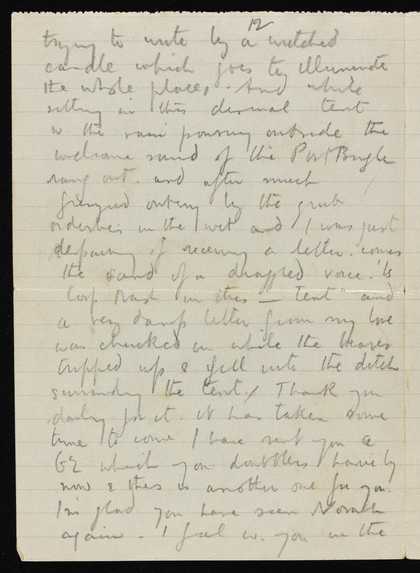 12
trying to write by a wretched
candle which goes to illuminate
the whole place. And while
sitting in this dismal tent
w the rain pouring outside the
welcome sound of the Post Bugle
rang out. and after much
frenzied outcry by the grub
orderlies in the wet and I was just
despairing of receiving a letter. comes
the sound of a draggled voice. "Is
Corp Nash in this — tent" and
a very damp letter from my love
was chucked in while the bearer
tripped up & fell into the ditch
surrounding the tent. Thank you
darling for it. it has taken some
time to come I have sent you a
which you doubtless have by
now & this is another one for you.
I'm glad you have seen
again. I feel w. you in the